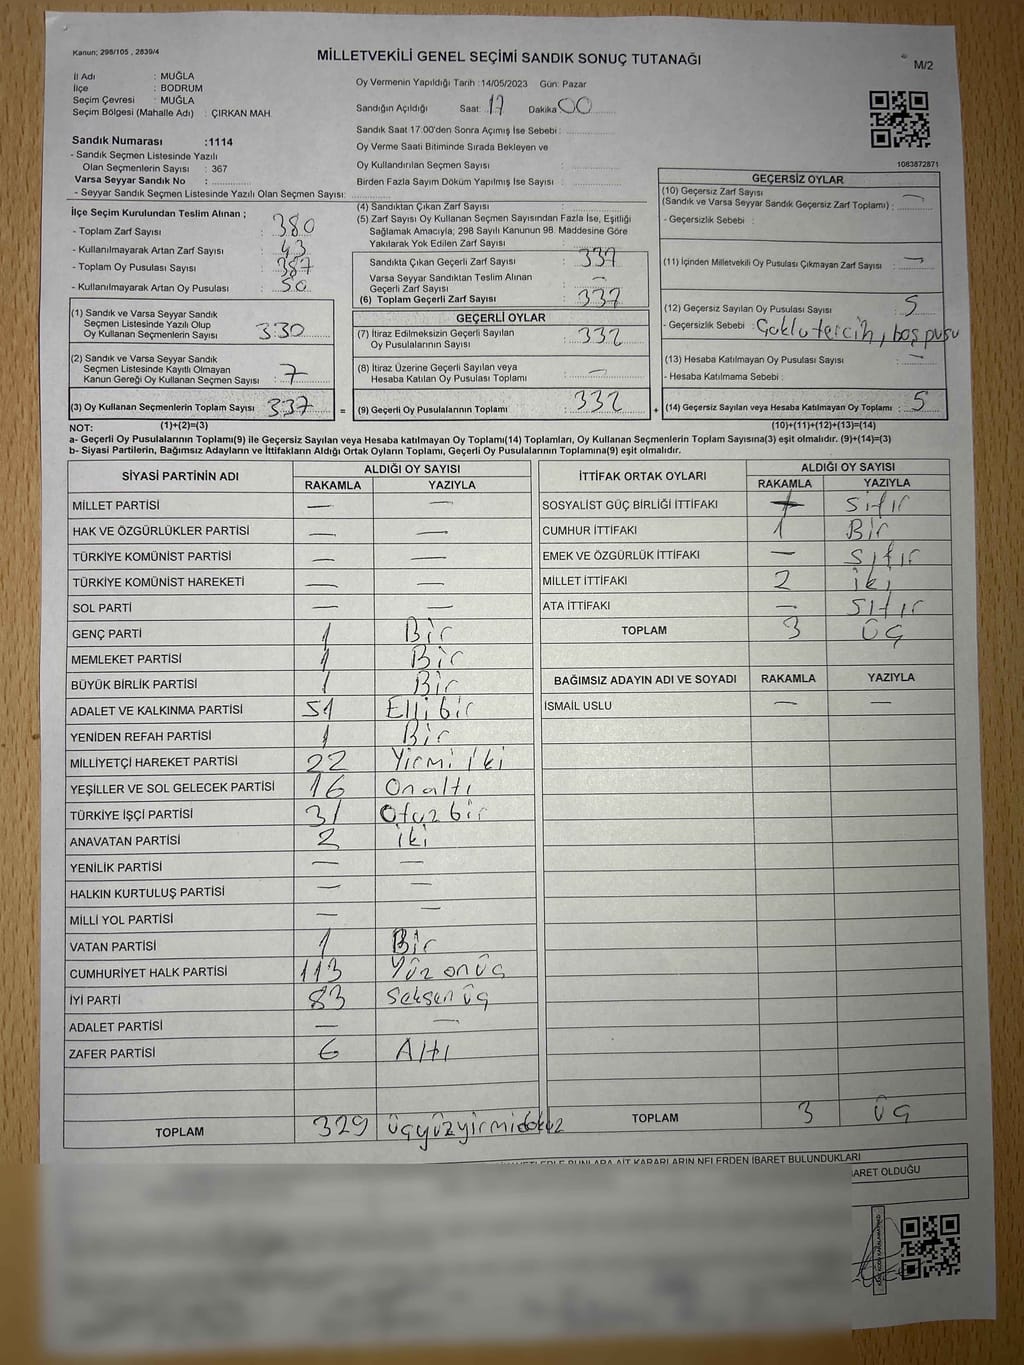 Kanun: 298/105 , 2839/4
MİLLETVEKİLİ GENEL SEÇİMİ SANDIK SONUÇ TUTANAĞI
M/2
İl Adı : MUĞLA
İlçe : BODRUM
Seçim Çevresi : MUĞLA
Seçim Bölgesi (Mahalle Adı) : ÇIRKAN MAH
Sandık Numarası :1114
- Sandık Seçmen Listesinde Yazılı
Olan Seçmenlerin Sayısı : 367
Varsa Seyyar Sandık No :
- Seyyar Sandık Seçmen Listesinde Yazılı Olan Seçmen Sayısı:
Oy Vermenin Yapıldığı Tarih :14/05/2023 Gün: Pazar
Sandığın Açıldığı Saat: 17 Dakika 00
Sandık Saat 17.00'den Sonra Açımış İse Sebebi :
Oy Verme Saati Bitiminde Sırada Bekleyen ve
Oy Kullandırılan Seçmen Sayısı :
Birden Fazla Sayım Döküm Yapılmış İse Sayısı :
1083872871
İlçe Seçim Kurulundan Teslim Alınan ;
- Toplam Zarf Sayısı : 380
- Kullanılmayarak Artan Zarf Sayısı : 43
- Toplam Oy Pusulası Sayısı : 387
- Kullanılmayarak Artan Oy Pusulası : 50
(1) Sandık ve Varsa Seyyar Sandık
Seçmen Listesinde Yazılı Olup
Oy Kullanan Seçmenlerin Sayısı 330
(2) Sandık ve Varsa Seyyar Sandık
Seçmen Listesinde Kayıtlı Olmayan
Kanun Gereği Oy Kullanan Seçmen Sayısı : 7
(3) Oy Kullanan Seçmenlerin Toplam Sayısı 337 =
(4) Sandıktan Çıkan Zarf Sayısı :
(5) Zarf Sayısı Oy Kullanan Seçmen Sayısından Fazla İse, Eşitliği
Sağlamak Amacıyla; 298 Sayılı Kanunun 98. Maddesine Göre
Yakılarak Yok Edilen Zarf Sayısı :
Sandıkta Çıkan Geçerli Zarf Sayısı : 337
Varsa Seyyar Sandıktan Teslim Alınan
Geçerli Zarf Sayısı : —
(6) Toplam Geçerli Zarf Sayısı : 337
GEÇERLİ OYLAR
(7) İtiraz Edilmeksizin Geçerli Sayılan
Oy Pusulalarının Sayısı : 332
(8) İtiraz Üzerine Geçerli Sayılan veya
Hesaba Katılan Oy Pusulası Toplamı : —
(9) Geçerli Oy Pusulalarının Toplamı : 332 +
GEÇERSİZ OYLAR
(10) Geçersiz Zarf Sayısı
(Sandık ve Varsa Seyyar Sandık Geçersiz Zarf Toplamı) : —
- Geçersizlik Sebebi :
(11) İçinden Milletvekili Oy Pusulası Çıkmayan Zarf Sayısı : —
(12) Geçersiz Sayılan Oy Pusulası Sayısı : 5
- Geçersizlik Sebebi : Çoklu tercih, boş pusu
(13) Hesaba Katılmayan Oy Pusulası Sayısı : —
- Hesaba Katılmama Sebebi :
(14) Geçersiz Sayılan veya Hesaba Katılmayan Oy Toplamı : 5
NOT: (1)+(2)=(3) (10)+(11)+(12)+(13)=(14)
a- Geçerli Oy Pusulalarının Toplamı(9) ile Geçersiz Sayılan veya Hesaba katılmayan Oy Toplamı(14) Toplamları, Oy Kullanan Seçmenlerin Toplam Sayısına(3) eşit olmalıdır. (9)+(14)=(3)
b- Siyasi Partilerin, Bağımsız Adayların ve İttifakların Aldığı Ortak Oyların Toplamı, Geçerli Oy Pusulalarının Toplamına(9) eşit olmalıdır.
SİYASİ PARTİNİN ADI ALDIĞI OY SAYISI
RAKAMLA YAZIYLA
MİLLET PARTİSİ — —
HAK VE ÖZGÜRLÜKLER PARTİSİ — —
TÜRKİYE KOMÜNİST PARTİSİ — —
TÜRKİYE KOMÜNİST HAREKETİ — —
SOL PARTİ — —
GENÇ PARTİ 1 Bir
MEMLEKET PARTİSİ 1 Bir
BÜYÜK BİRLİK PARTİSİ 1 Bir
ADALET VE KALKINMA PARTİSİ 51 Elli bir
YENİDEN REFAH PARTİSİ 1 Bir
MİLLİYETÇİ HAREKET PARTİSİ 22 Yirmi iki
YEŞİLLER VE SOL GELECEK PARTİSİ 16 On altı
TÜRKİYE İŞÇİ PARTİSİ 31 Otuz bir
ANAVATAN PARTİSİ 2 iki
YENİLİK PARTİSİ — —
HALKIN KURTULUŞ PARTİSİ — —
MİLLİ YOL PARTİSİ — —
VATAN PARTİSİ 1 Bir
CUMHURİYET HALK PARTİSİ 113 Yüz onüç
İYİ PARTİ 83 Seksen üç
ADALET PARTİSİ — —
ZAFER PARTİSİ 6 Altı
TOPLAM 329 üçyüzyirmidokuz
İTTİFAK ORTAK OYLARI ALDIĞI OY SAYISI
RAKAMLA YAZIYLA
SOSYALİST GÜÇ BİRLİĞİ İTTİFAKI — Sıfır
CUMHUR İTTİFAKI 1 Bir
EMEK VE ÖZGÜRLÜK İTTİFAKI — Sıfır
MİLLET İTTİFAKI 2 iki
ATA İTTİFAKI — Sıfır
TOPLAM 3 üç
BAĞIMSIZ ADAYIN ADI VE SOYADI RAKAMLA YAZIYLA
İSMAİL USLU — —
TOPLAM 3 üç
BUNLARA AİT KARARLARIN NELERDEN İBARET BULUNDUKLARI
BARET OLDUĞU